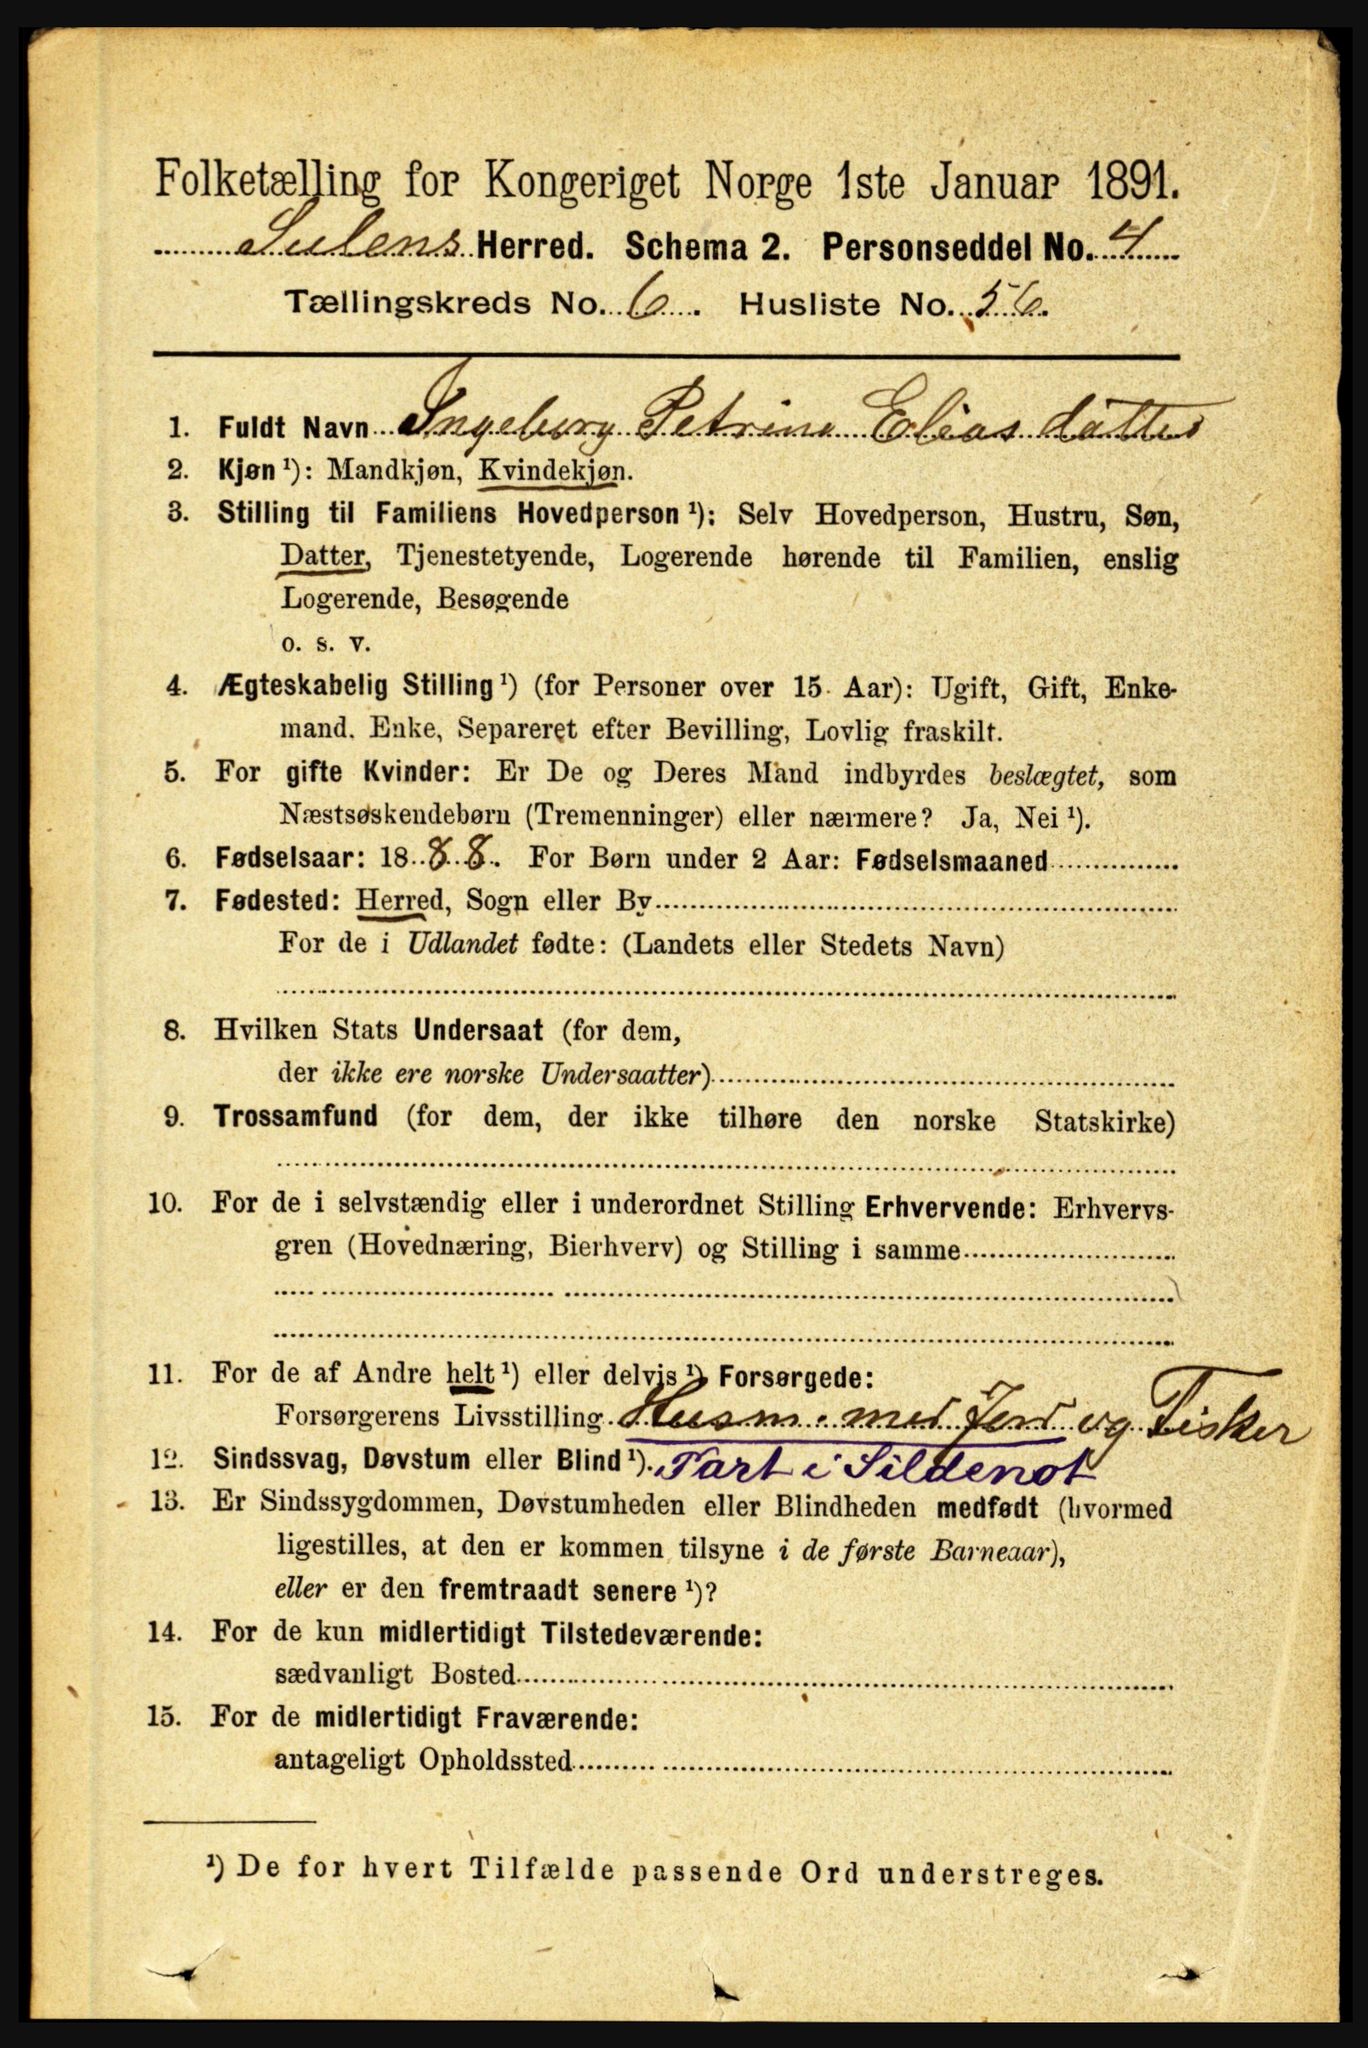 Folketælling for Kongeriget Norge 1ste Januar 1891.
Sulens Herred. Schema 2. Personseddel No. 4
Tællingskreds No. 6. Husliste No. 56.
1. Fuldt Navn Ingeborg Petrine Elias datter
2. Kjøn ¹): Mandkjøn, Kvindekjøn.
3. Stilling til Familiens Hovedperson ¹): Selv Hovedperson, Hustru, Søn,
Datter, Tjenestetyende, Logerende hørende til Familien, enslig
Logerende, Besøgende
o. s. v.
4. Ægteskabelig Stilling ¹) (for Personer over 15 Aar): Ugift, Gift, Enke-
mand, Enke, Separeret efter Bevilling, Lovlig fraskilt.
5. For gifte Kvinder: Er De og Deres Mand indbyrdes beslægtet, som
Næstsøskendebørn (Tremenninger) eller nærmere? Ja, Nei ¹).
6. Fødselsaar: 1888. For Børn under 2 Aar: Fødselsmaaned
7. Fødested: Herred, Sogn eller By
For de i Udlandet fødte: (Landets eller Stedets Navn)
8. Hvilken Stats Undersaat (for dem,
der ikke ere norske Undersaatter)
9. Trossamfund (for dem, der ikke tilhøre den norske Statskirke)
10. For de i selvstændig eller i underordnet Stilling Erhvervende: Erhvervs-
gren (Hovednæring, Bierhverv) og Stilling i samme
11. For de af Andre helt ¹) eller delvis ¹) Forsørgede:
Forsørgerens Livsstilling Husm. med Jord og Fisker
12. Sindssvag, Døvstum eller Blind ¹). Part i Sildenot
13. Er Sindssygdommen, Døvstumheden eller Blindheden medfødt (hvormed
ligestilles, at den er kommen tilsyne i de første Barneaar),
eller er den fremtraadt senere ¹)?
14. For de kun midlertidigt Tilstedeværende:
sædvanligt Bosted
15. For de midlertidigt Fraværende:
antageligt Opholdssted
¹) De for hvert Tilfælde passende Ord understreges.